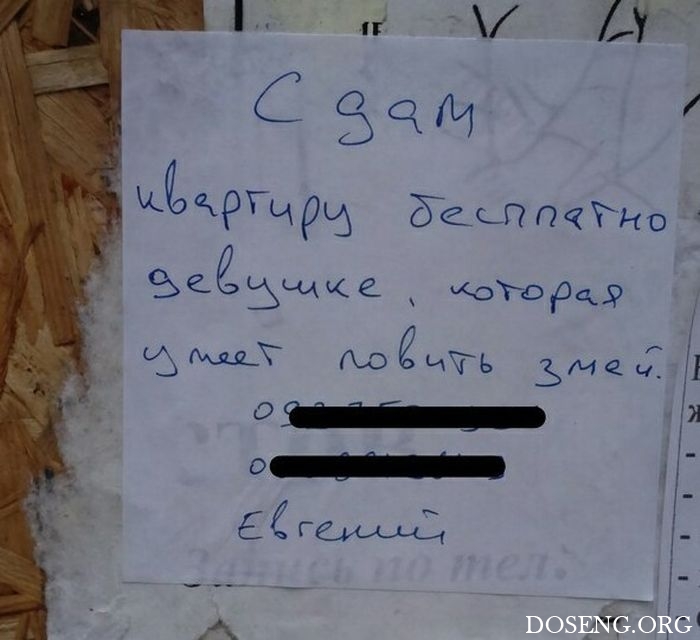 Сдам
квартиру бесплатно
девушке, которая
умеет ловить змей.
Евгений
Запись по тел.:
DOSENG.ORG